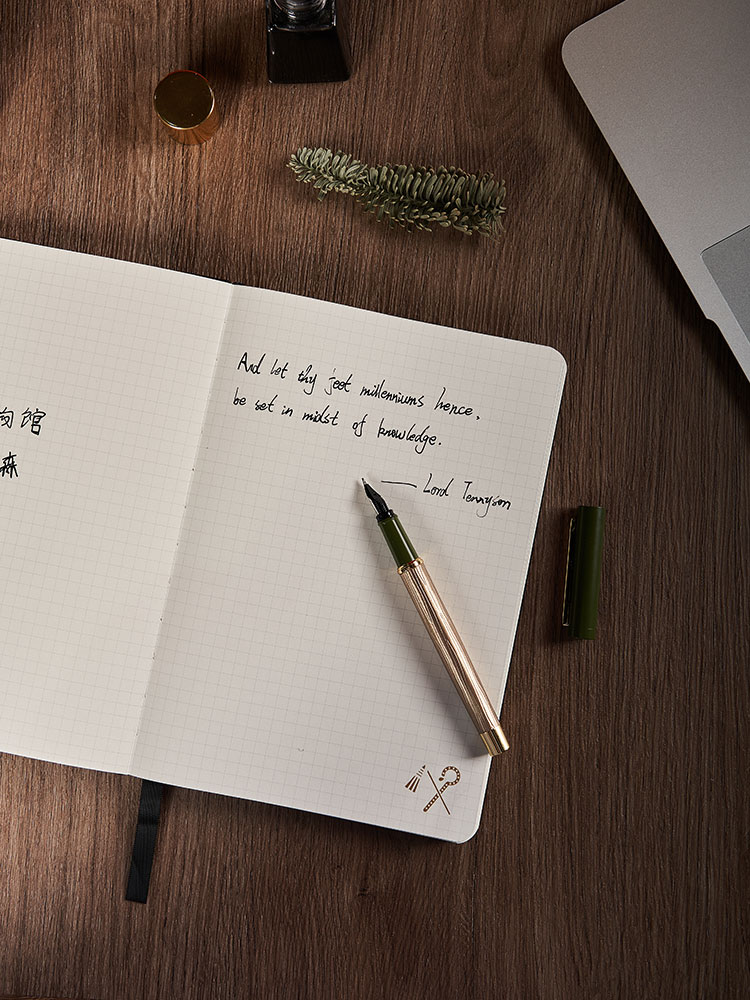 馆
森
And let thy feet millenniums hence,
be set in midst of knowledge.
— Lord Tennyson